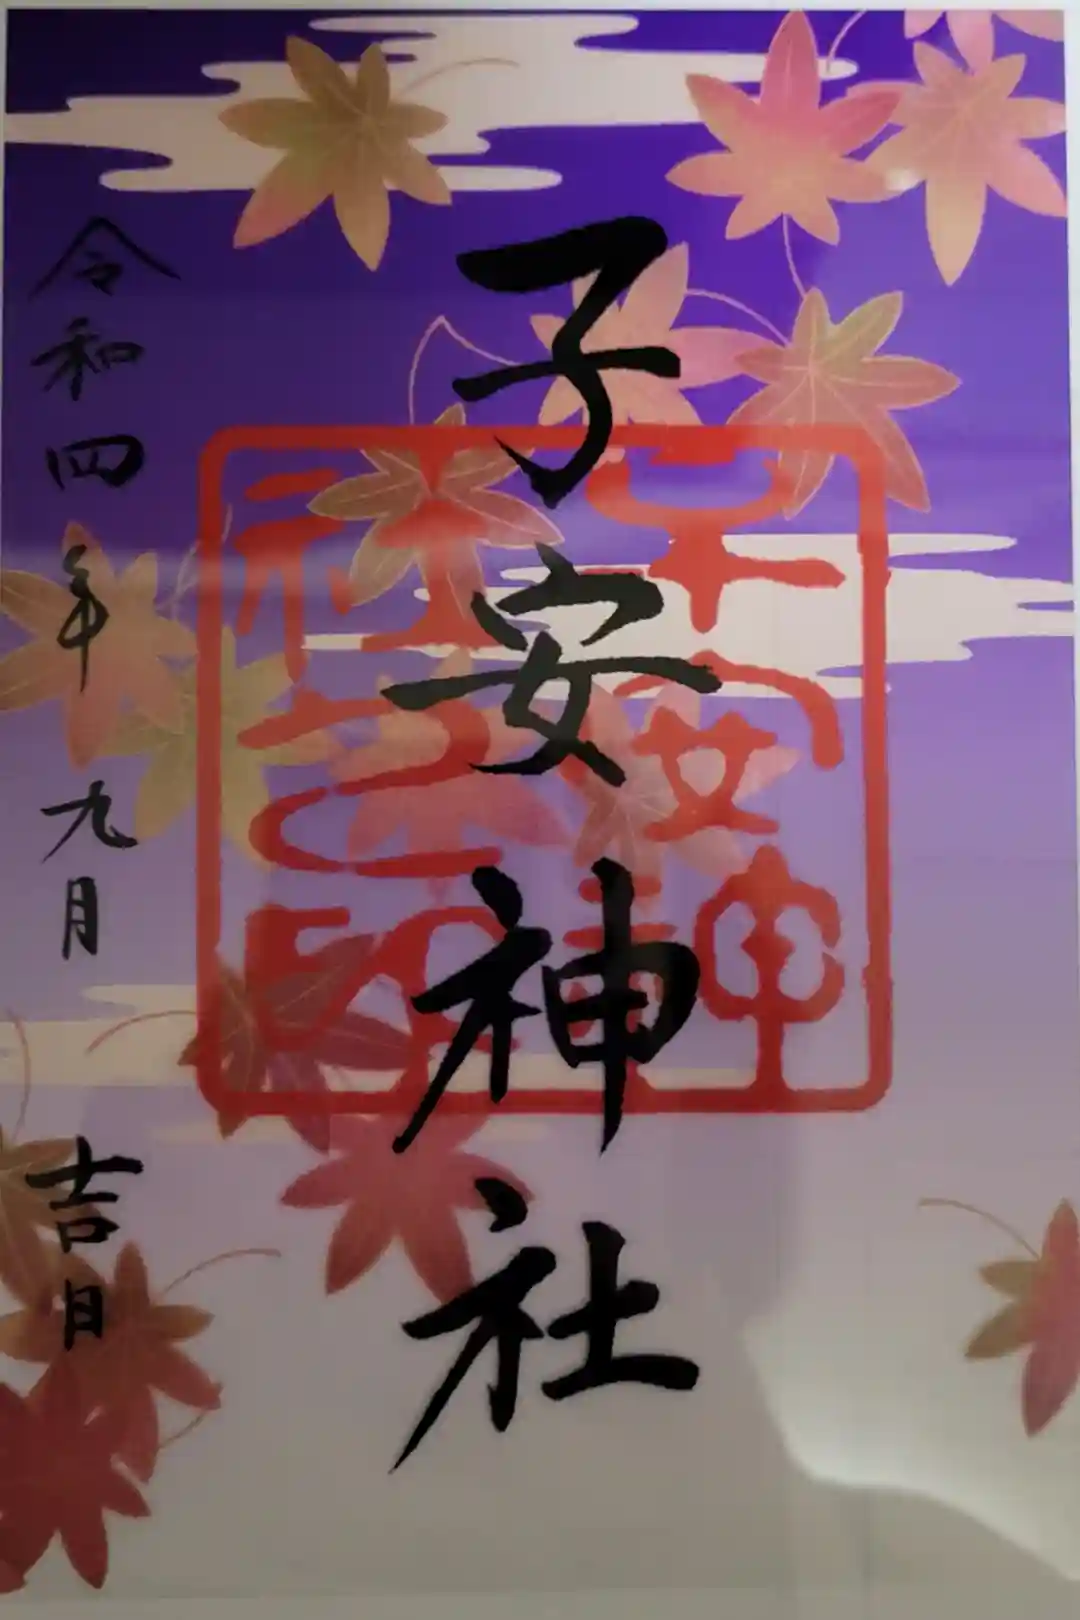 子安神社
子安神
社之印
令和四年九月吉日